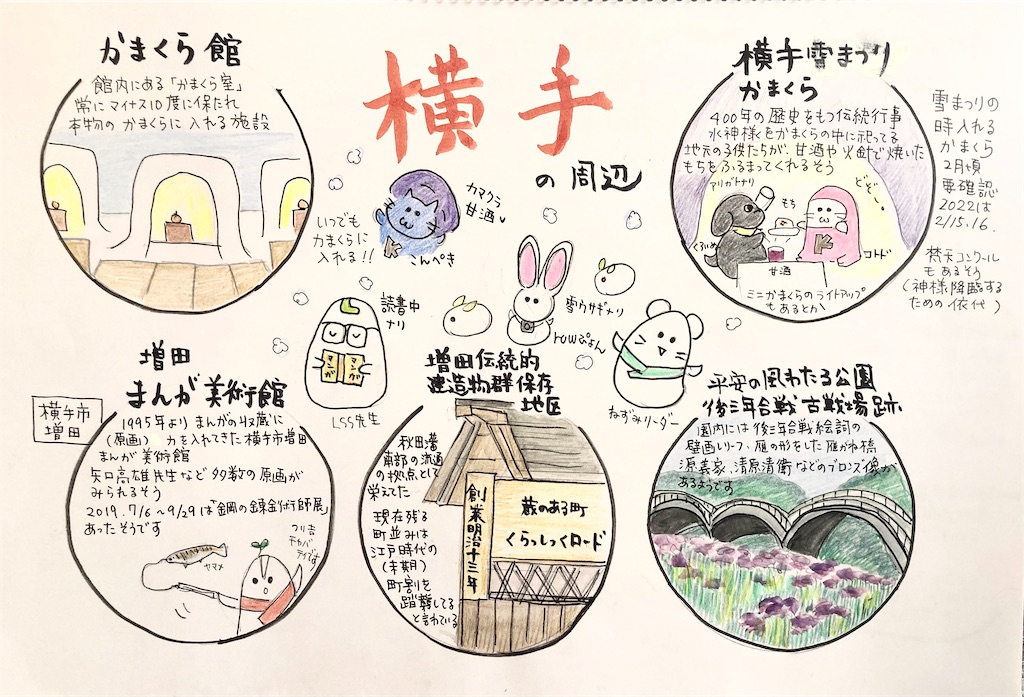 横手
の周辺
かまくら館
館内にある「かまくら室」
常にマイナス10度に保たれ
本物のかまくらに入れる施設
いつでも
かまくらに
入れる!!
カマクラ
甘酒
こんぺき
横手雪まつり
かまくら
400年の歴史をもつ伝統行事
水神様をかまくらの中に祀ってる
地元の子供たちが、甘酒や火鉢で焼いた
もちをふるまってくれるそう
アリガトナリ
もち
どぞー。
くろいぬ
コトド
甘酒
ミニかまくらのライトアップ
もあるとか
雪まつりの
時入れる
かまくら
2月頃
要確認
2022は
2/15.16.
梵天コンクール
もあるそう
(神様降臨する
ための依代)
読書中
ナリ
マンガ
マンガ
LSS先生
雪ウサギナリ
rowぴょん
ねずみリーダー
横手市
増田
増田
まんが美術館
1995年よりまんがの収蔵に
(原画) 力を入れてきた横手市増田
まんが美術館
矢口高雄先生など多数の原画が
みられるそう
2019.7/6~9/29は「鋼の錬金術師展」
あったそうです
ヤマメ
フリ吉
チャバ
テイです
増田伝統的
建造物群保存
地区
秋田藩
南部の流通
の拠点として
栄えた
現在残る
町並みは
江戸時代の
(末期)
町割を
踏襲してる
と言われている
創業明治十三年
蔵のある町
くらっしっくロード
平安の風わたる公園
後三年合戦古戦場跡
園内には後三年合戦絵詞の
壁画レリーフ、雁の形をした雁がね橋
源義家、清原清衡などのブロンズ像が
あるようです